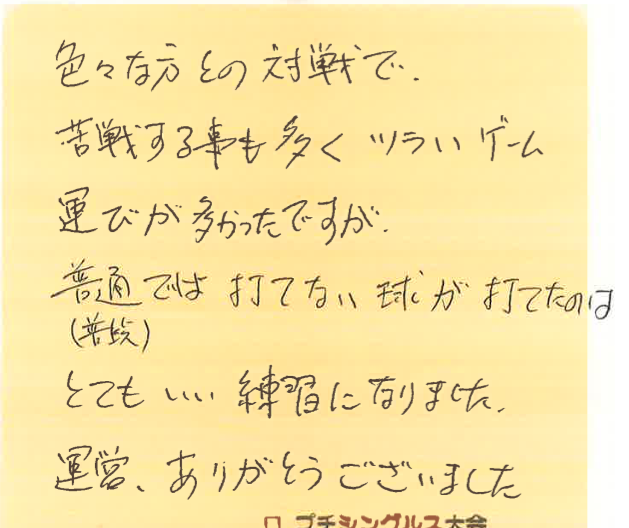 色々な方との対戦で、
苦戦する事も多くツラいゲーム
運びが多かったですが、
普通では打てない球が打てたのは
(普段)
とてもいい練習になりました。
運営、ありがとうございました
□ プチシングルス大会